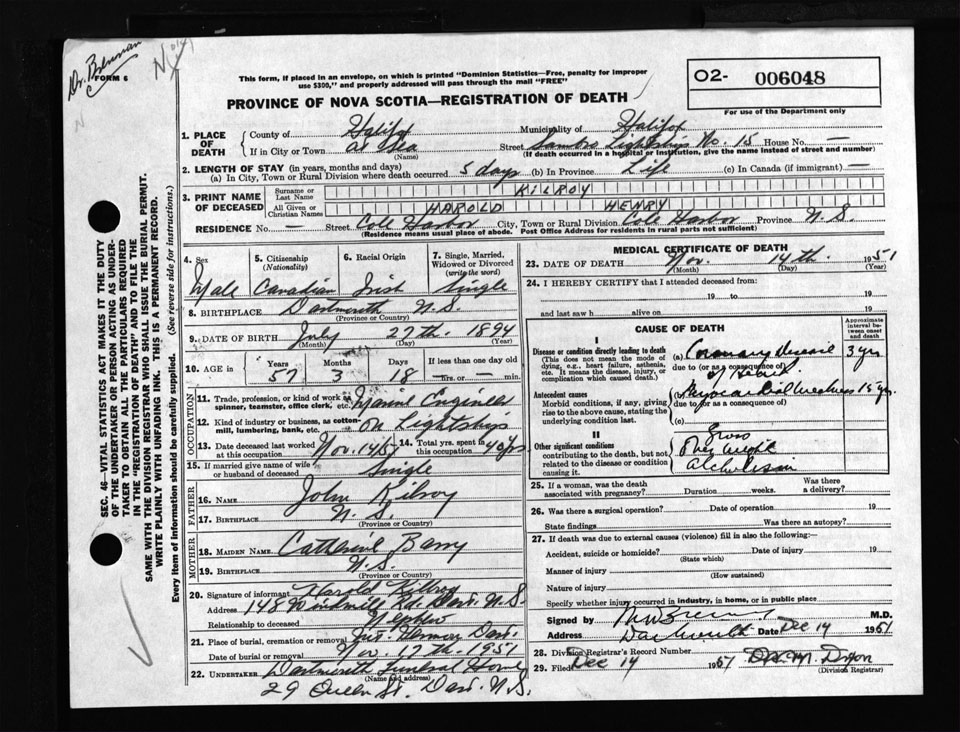 Dr. Brennan
FORM 6
N
This form, if placed in an envelope, on which is printed "Dominion Statistics—Free, penalty for improper
use $300," and properly addressed will pass through the mail "FREE"
O2- 006048
For use of the Department only
PROVINCE OF NOVA SCOTIA—REGISTRATION OF DEATH
1. PLACE OF DEATH County of Halifax Municipality of Halifax
If in City or Town at Sea (Name) Street Sambro Lightship No. 15 House No. —
(If death occurred in a hospital or institution, give the name instead of street and number)
2. LENGTH OF STAY (in years, months and days)
(a) In City, Town or Rural Division where death occurred 5 days (b) In Province Life (c) In Canada (if immigrant) —
3. PRINT NAME OF DECEASED Surname or Last Name KILROY
All Given or Christian Names HAROLD HENRY
RESIDENCE No. — Street Cole Harbor City, Town or Rural Division Cole Harbor Province N.S.
(Residence means usual place of abode. Post Office Address for residents in rural parts not sufficient)
4. Sex Male
5. Citizenship (Nationality) Canadian
6. Racial Origin Irish
7. Single, Married, Widowed or Divorced (write the word) Single
8. BIRTHPLACE Dartmouth N.S.
(Province or Country)
9. DATE OF BIRTH July 27th. 1894
(Month) (Day) (Year)
10. AGE in Years 57 Months 3 Days 18 If less than one day old — hrs. or — min.
OCCUPATION
11. Trade, profession, or kind of work as spinner, teamster, office clerk, etc. Marine Engineer
12. Kind of industry or business, as cotton-mill, lumbering, bank, etc. on Lightship
13. Date deceased last worked at this occupation Nov. 14/51 14. Total yrs. spent in this occupation 40 yrs
15. If married give name of wife or husband of deceased Single
FATHER
16. NAME John Kilroy
17. BIRTHPLACE N.S.
(Province or Country)
MOTHER
18. MAIDEN NAME Catherine Barry
19. BIRTHPLACE N.S.
(Province or Country)
20. Signature of informant Harold Kilroy
Address 148 Windmill Rd. Dart. N.S.
Relationship to deceased Nephew
21. Place of burial, cremation or removal Mt. Hermon Dart.
Date of burial or removal Nov. 17th. 1951
22. UNDERTAKER Dartmouth Funeral Home
(Name and address)
29 Queen St. Dart. N.S.
MEDICAL CERTIFICATE OF DEATH
23. DATE OF DEATH Nov. 14th. 1951
(Month) (Day) (Year)
24. I HEREBY CERTIFY that I attended deceased from:
19 to 19
and last saw h alive on 19
CAUSE OF DEATH
Approximate interval between onset and death
I
Disease or condition directly leading to death
(This does not mean the mode of dying, e.g., heart failure, asthenia, etc. It means the disease, injury, or complication which caused death.)
(a) Coronary Disease 3 yrs
due to (or as a consequence of)
of Heart
Antecedent causes
Morbid conditions, if any, giving rise to the above cause, stating the underlying condition last.
Myocardial Weakness 15 yrs.
due to (or as a consequence of)
(c)
II
Other significant conditions contributing to the death, but not related to the disease or condition causing it.
Gross
Over weight
Alcholism
25. If a woman, was the death associated with pregnancy? Duration weeks. Was there a delivery?
26. Was there a surgical operation? Date of operation 19
State findings Was there an autopsy?
27. If death was due to external causes (violence) fill in also the following:—
Accident, suicide or homicide? Date of injury 19
(State which)
Manner of injury
(How sustained)
Nature of injury
Specify whether injury occurred in industry, in home, or in public place
Signed by M.D.
Address Dartmouth Date Dec 14 1951
28. Division Registrar's Record Number
29. Filed Dec 14 1951
(Division Registrar)
SEC. 46—VITAL STATISTICS ACT MAKES IT THE DUTY
OF THE UNDERTAKER OR PERSON ACTING AS UNDER-
TAKER TO OBTAIN ALL THE PARTICULARS REQUIRED
IN THE "REGISTRATION OF DEATH" AND TO FILE THE
SAME WITH THE DIVISION REGISTRAR WHO SHALL ISSUE THE BURIAL PERMIT.
WRITE PLAINLY WITH UNFADING INK. THIS IS A PERMANENT RECORD.
Every item of information should be carefully supplied. (See reverse side for instructions.)